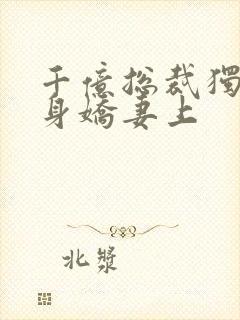 千億总裁獨
身嬌妻上
北漿